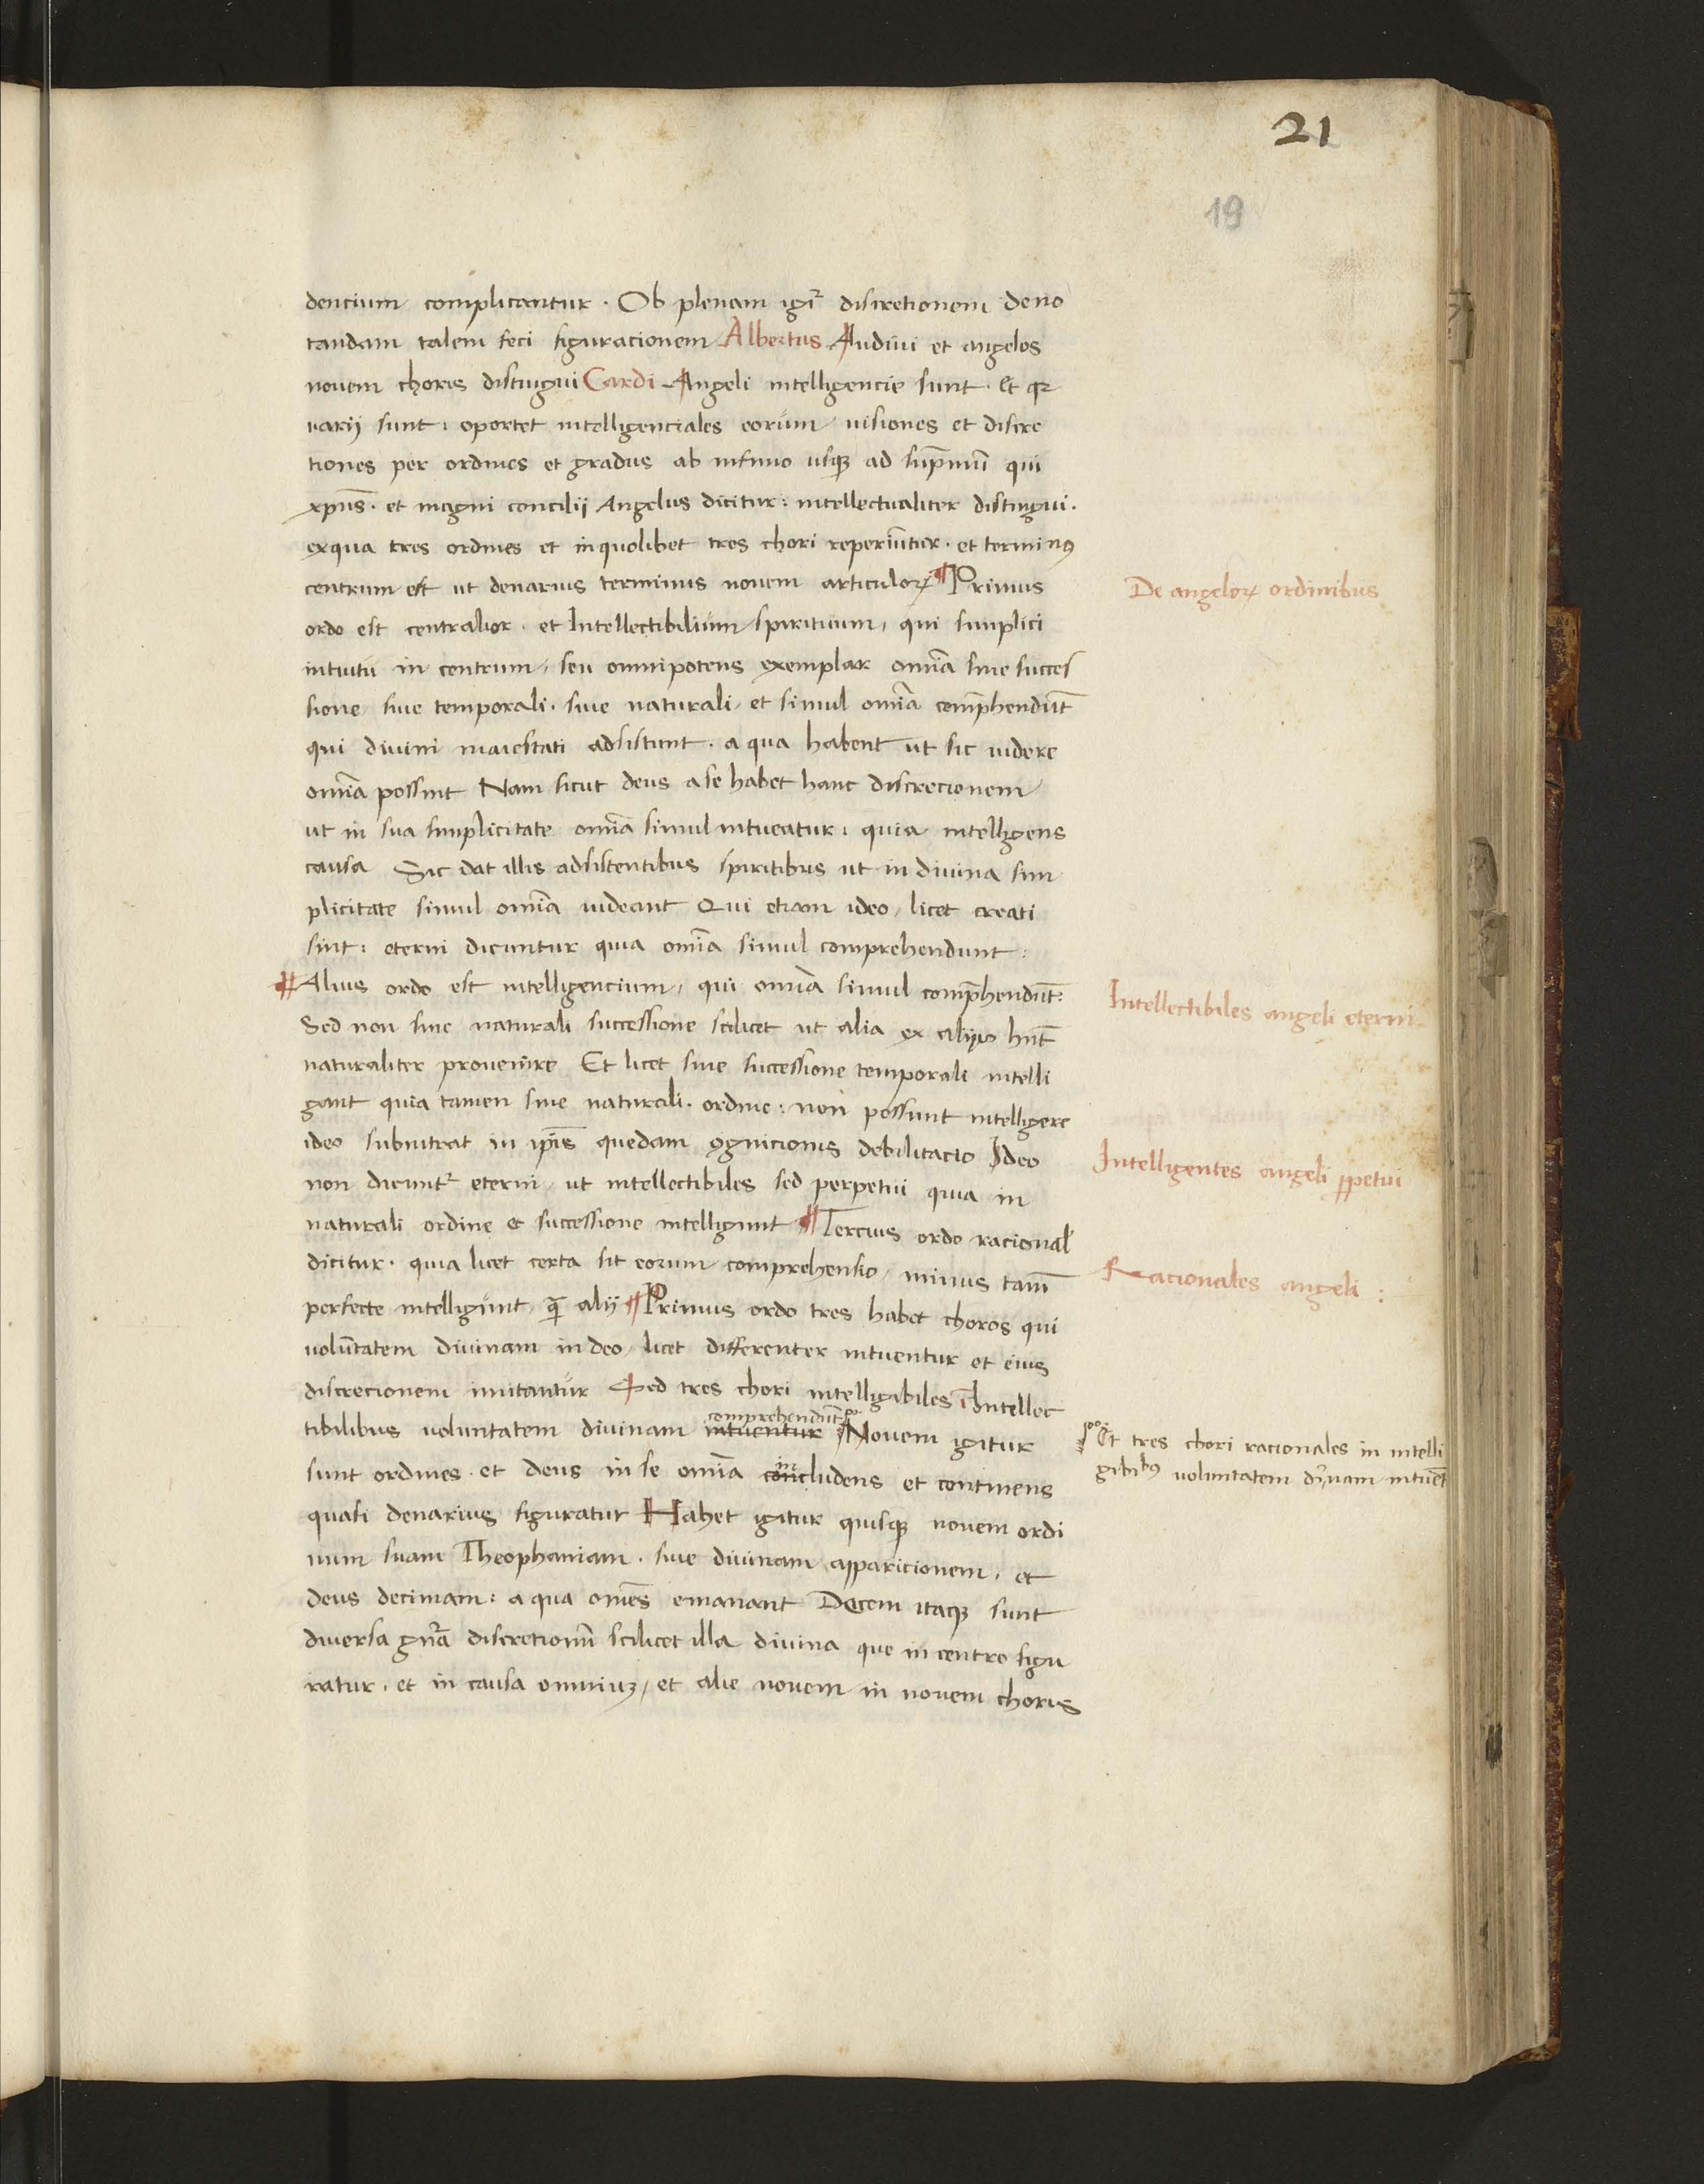 21
19
dencium complicantur. Ob plenam igit̄ discretionem deno
tandam talem feci figuracionem Albertus Audivi et angelos
novem choris distingui Cardi Angeli intelligencie sunt. Et qꝛ
varij sunt: oportet intelligenciales eorum visiones et discre
tiones per ordines et gradus ab infimo usqꝫ ad sup̄mū qui
xp̄us. et magni concilij Angelus dicitur: intellectualiter distingui.
ex qua tres ordines et in quolibet tres chori reperiuntur. et terminꝰ
centrum est ut denarius terminus novem articuloꝝ Primus
De angeloꝝ ordinibus
ordo est centralior. et Intellectibilium spirituum, qui simplici
intuitu in centrum, seu omnipotens exemplar om̄ia sine succes
sione, sive temporali. sive naturali, et simul om̄ia comp̄hendūt
qui divini maiestati adsistunt. a qua habent ut sic videre
om̄ia possint Nam sicut deus a se habet hanc discrecionem
ut in sua simplicitate om̄ia simul intueatur: quia intelligens
causa Sic dat illis adsistentibus spiritibus ut in divina sim
plicitate simul om̄ia videant Qui etiam ideo, licet creati
sint: eterni dicuntur quia om̄ia simul comprehendunt:
Alius ordo est intelligencium, qui omnia simul comp̄hendūt:
Intellectibiles angeli eterni
Sed non sine naturali successione scilicet ut alia ex alijs hn̄t
naturaliter provenire Et licet sine successione temporali intelli
gant quia tamen sine naturali. ordine: non possunt intelligere
ideo subintrat in ip̄is quedam ꝯgnicionis debilitacio Ideo
Intelligentes angeli ꝑpetui
non dicunt̄ eterni, ut intellectibiles sed perpetui quia in
naturali ordine et successione intelligunt Tercius ordo racional
dicitur. quia licet certa sit eorum comprehensio, minus tam̄
Racionales angeli:
perfecte intelligunt, qᷓ alij Primus ordo tres habet choros qui
voluntatem divinam in deo, licet differenter intuentur et eius
discrecionem imitantur Sed tres chori intelligibiles ī Intellec
tibilibus voluntatem divinam intuentur comprehendūt Novem igitur
Et tres chori racionales in intelli
gibibꝰ voluntatem divīnam intuēt
sunt ordines. et deus in se om̄ia concludens et continens
quasi denarius figuratur Habet igitur quisqꝫ novem ordi
num suam Theophaniam. sive divinam apparicionem, et
deus decimam: a qua om̄es emanant Decem itaqꝫ sunt
diversa gn̄a discretionū scilicet illa divina que in centro figu
ratur. et in causa omniuꝫ, et alie novem in novem choris